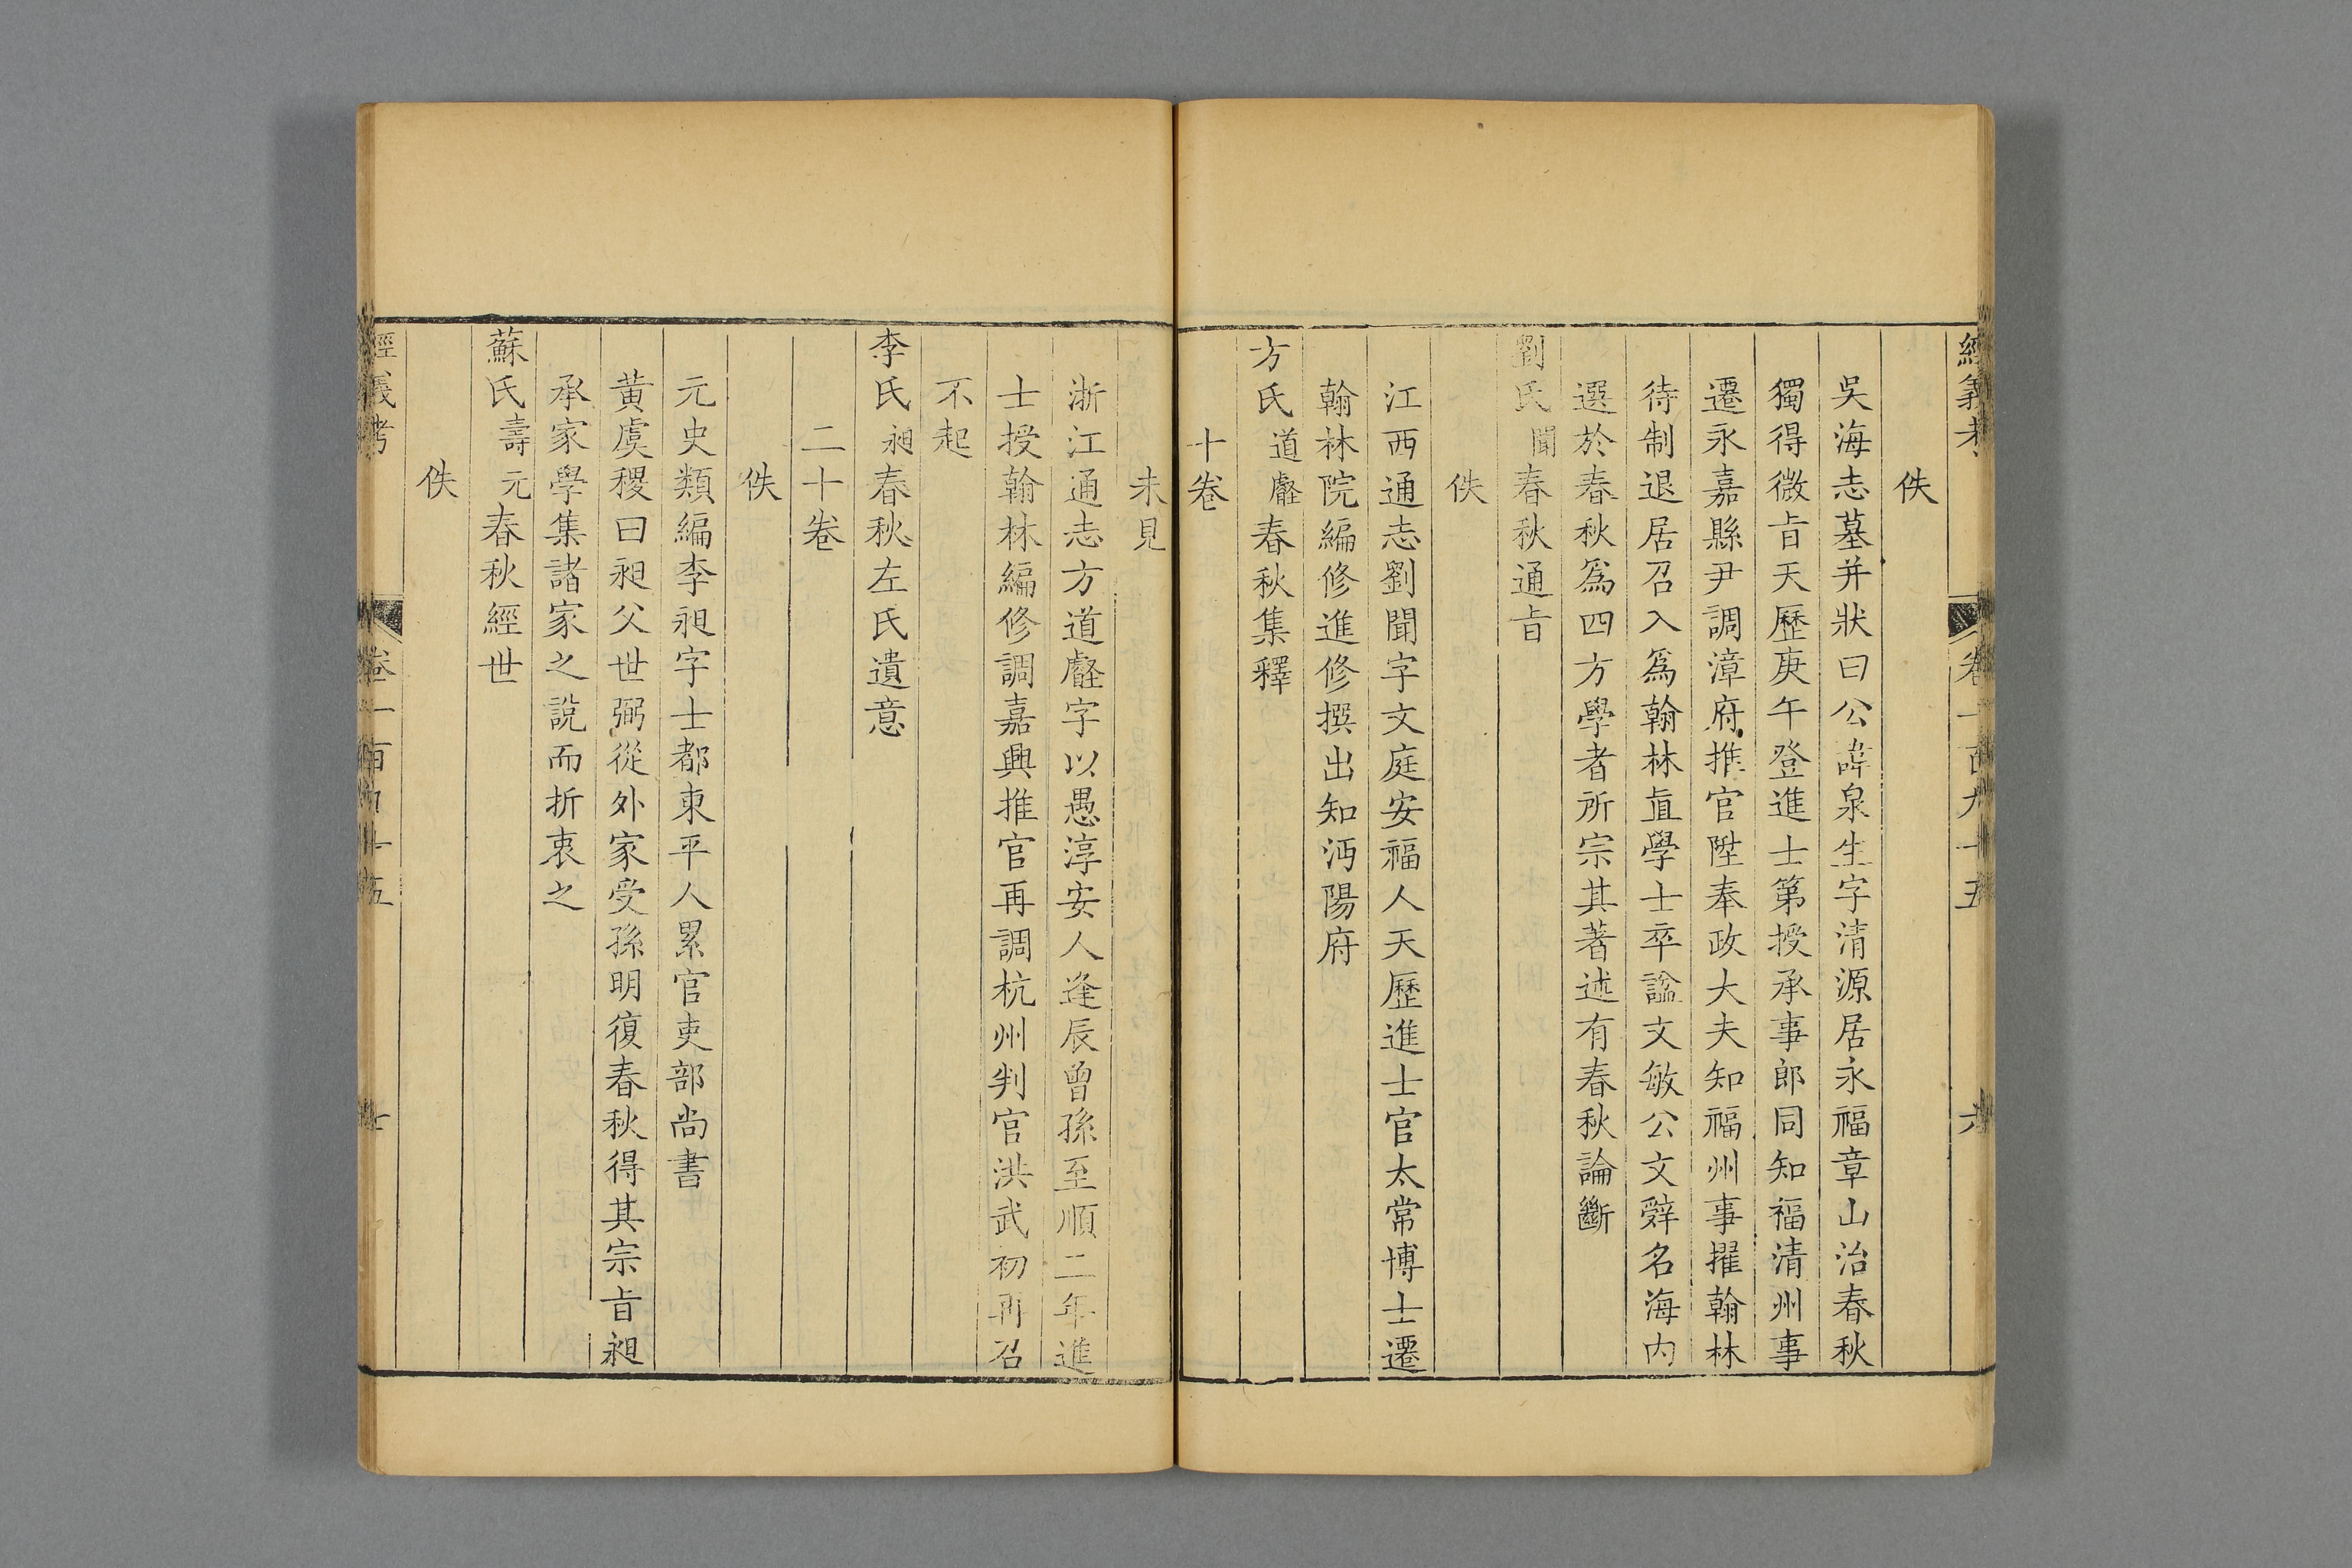 經義考 卷一百九十五 六
佚
吳海志墓并狀曰公諱泉生字清源居永福章山治春秋
獨得微㫖天歷庚午登進士第授承事郎同知福清州事
遷永嘉縣尹調漳府推官陞奉政大夫知福州事擢翰林
待制退居召入爲翰林直學士卒諡文敏公文辭名海内
選於春秋爲四方學者所宗其著述有春秋論斷
劉氏聞春秋通㫖
佚
江西通志劉聞字文庭安福人天歷進士官太常博士遷
翰林院編修進修撰出知沔陽府
方氏道壡春秋集釋
十卷
未見
浙江通志方道壡字以愚淳安人逢辰曾孫至順二年進
士授翰林編修調嘉興推官再調杭州判官洪武初再召
不起
李氏昶春秋左氏遺意
二十卷
佚
元史類編李昶字士都東平人累官吏部尚書
黄虞稷曰昶父世弼從外家受孫明復春秋得其宗㫖昶
承家學集諸家之說而折衷之
蘇氏壽元春秋經世
佚
經義考 卷一百九十五 七